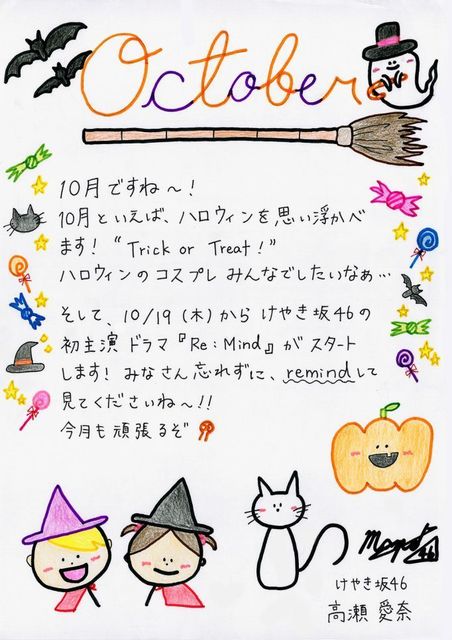 October
10月ですね〜!
10月といえば、ハロウィンを思い浮かべ
ます! “Trick or Treat!”
ハロウィンのコスプレみんなでしたいなぁ…
そして、10/19(木)から けやき坂46の
初主演ドラマ『Re:Mind』がスタート
します! みなさん忘れずに、remindして
見てくださいね〜!!
今月も頑張るぞ
46
けやき坂46
高瀬 愛奈